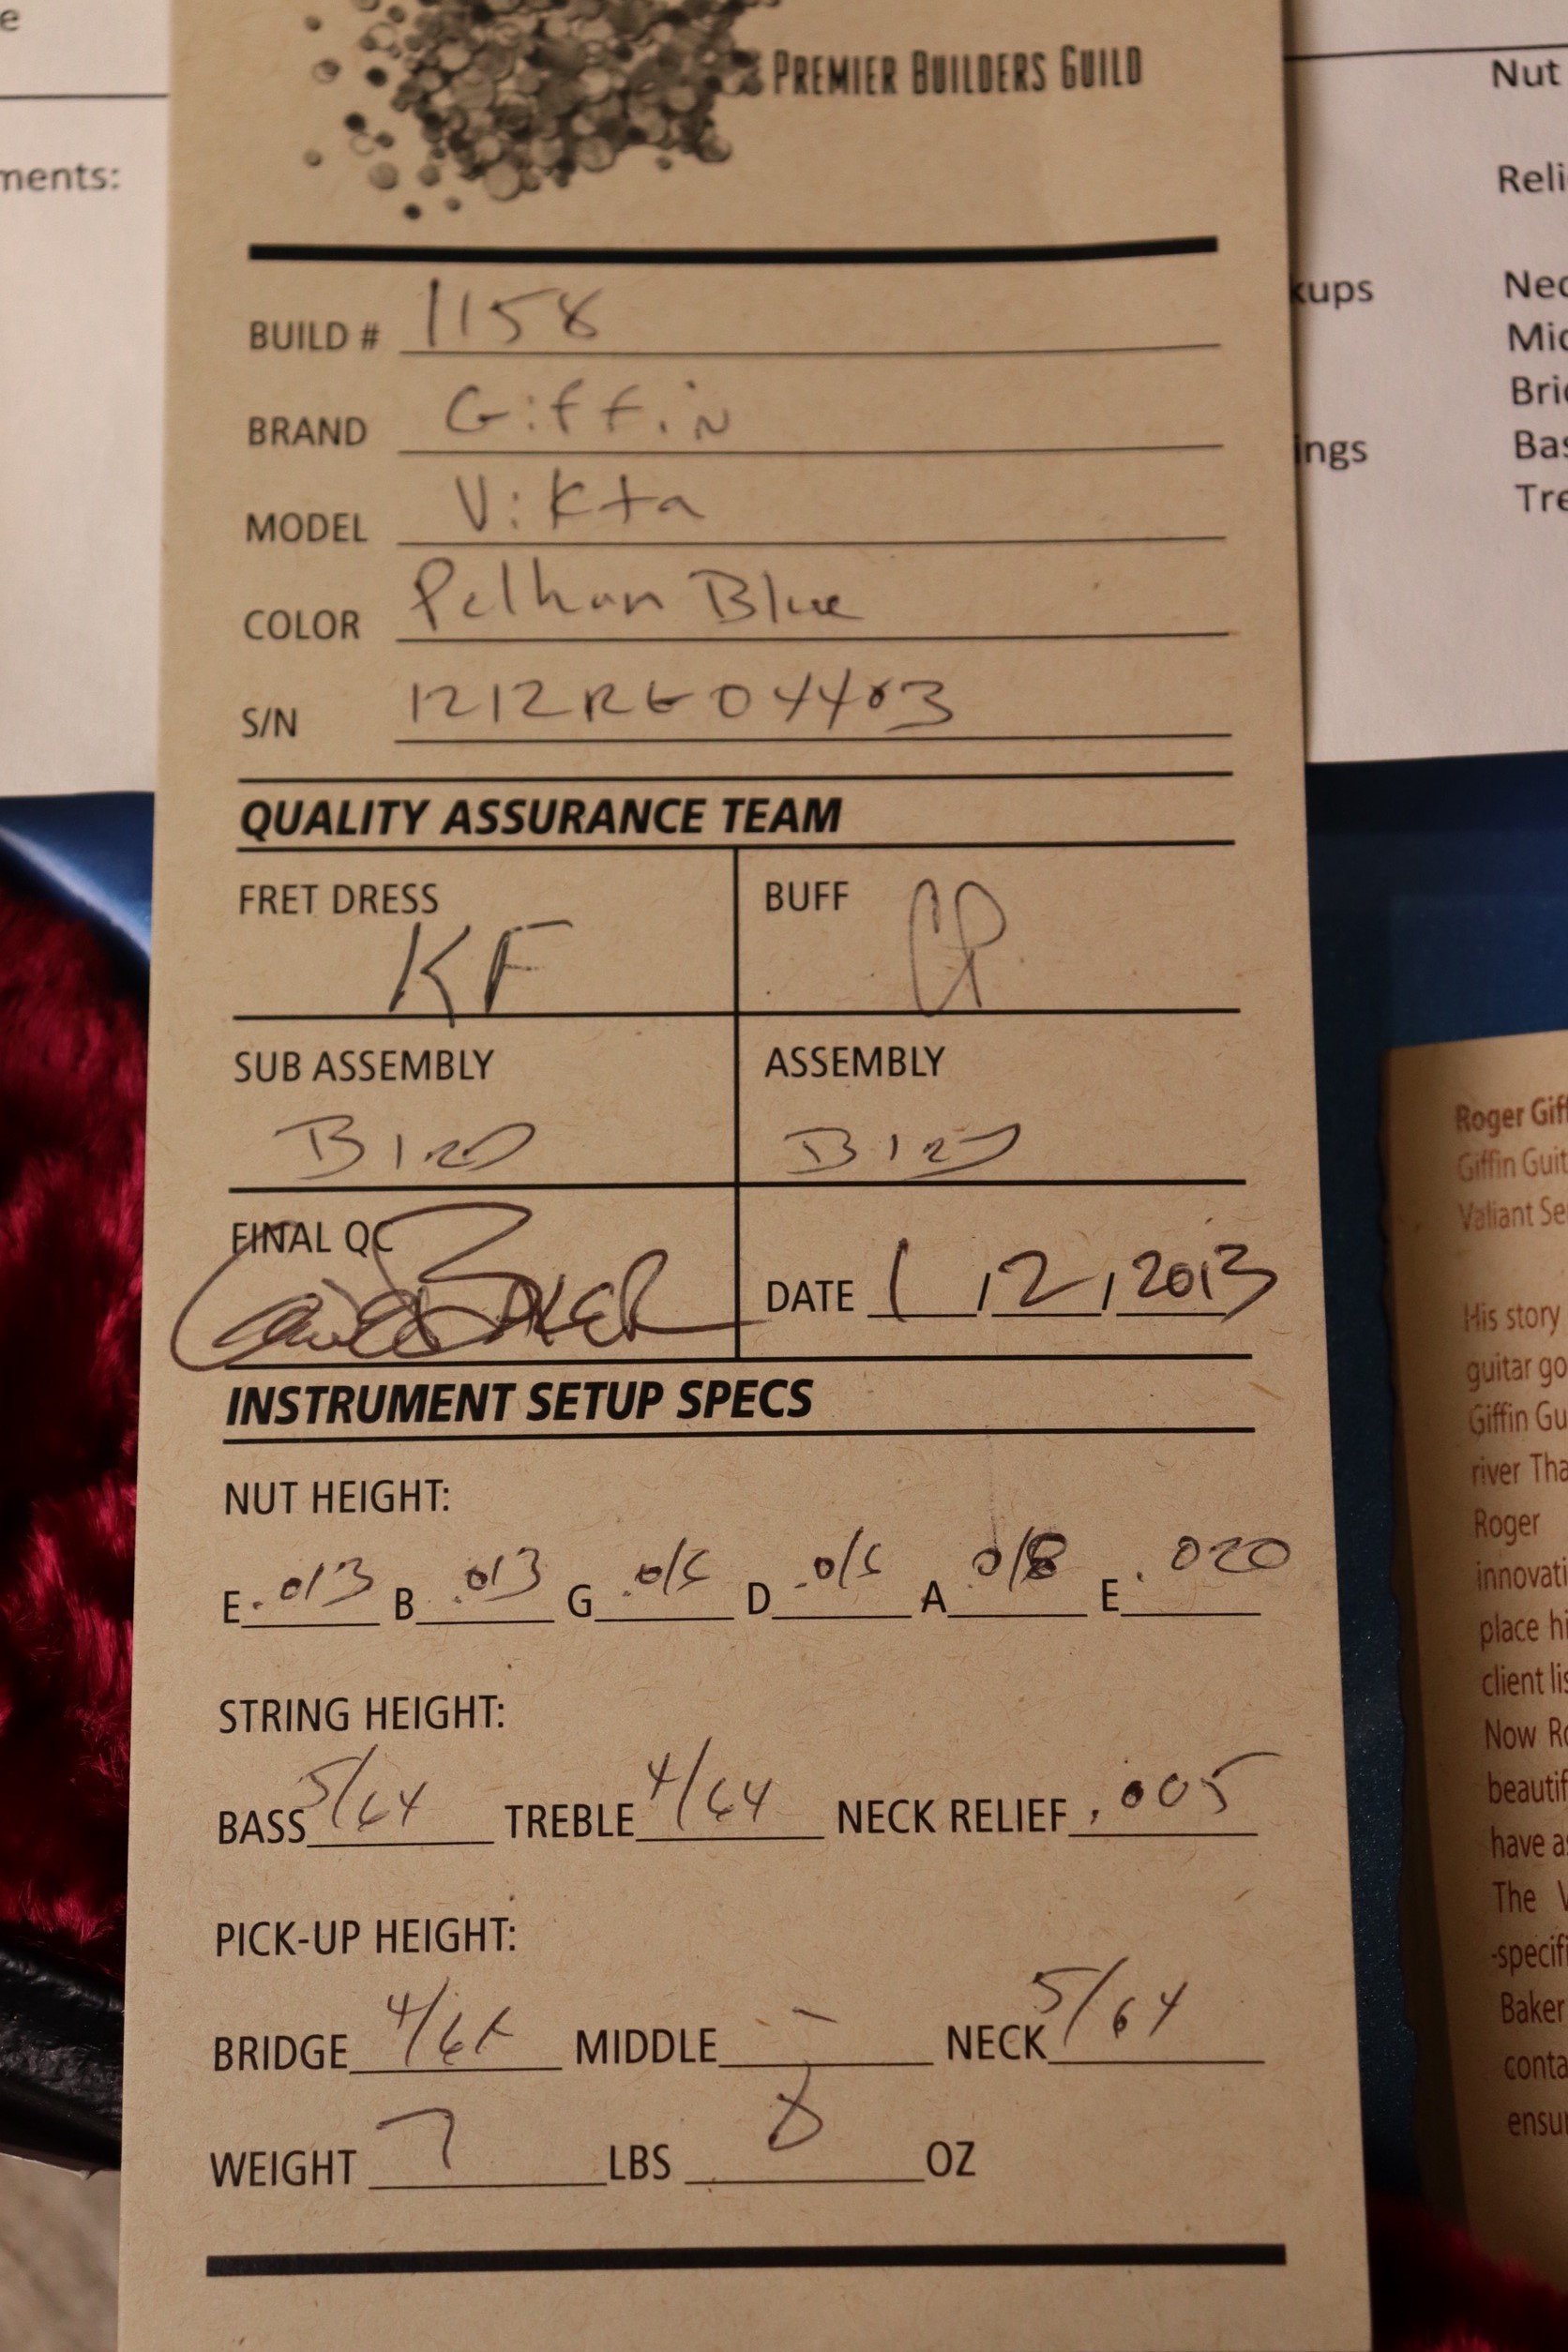 e
ments:
PREMIER BUILDERS GUILD
BUILD # 1158
BRAND Giffin
MODEL Vikta
COLOR Pelham Blue
S/N 1212RG04403
QUALITY ASSURANCE TEAM
FRET DRESS KF
BUFF CP
SUB ASSEMBLY
ASSEMBLY
FINAL QC
DATE 1, 12, 2013
INSTRUMENT SETUP SPECS
NUT HEIGHT:
E .013 B .013 G D A .018 E .020
STRING HEIGHT:
BASS 5/64 TREBLE 4/64 NECK RELIEF .005
PICK-UP HEIGHT:
BRIDGE 4/64 MIDDLE - NECK 5/64
WEIGHT 7 LBS 8 OZ
Nut
Reli
kups Nec
Mic
Bri
ings Bas
Tre
Roger Giff
Giffin Guit
Valiant Se
His story
guitar go
Giffin Gu
river Tha
Roger
innovati
place hi
client lis
Now Ro
beautif
have a
The V
-specifi
Baker
conta
ensu